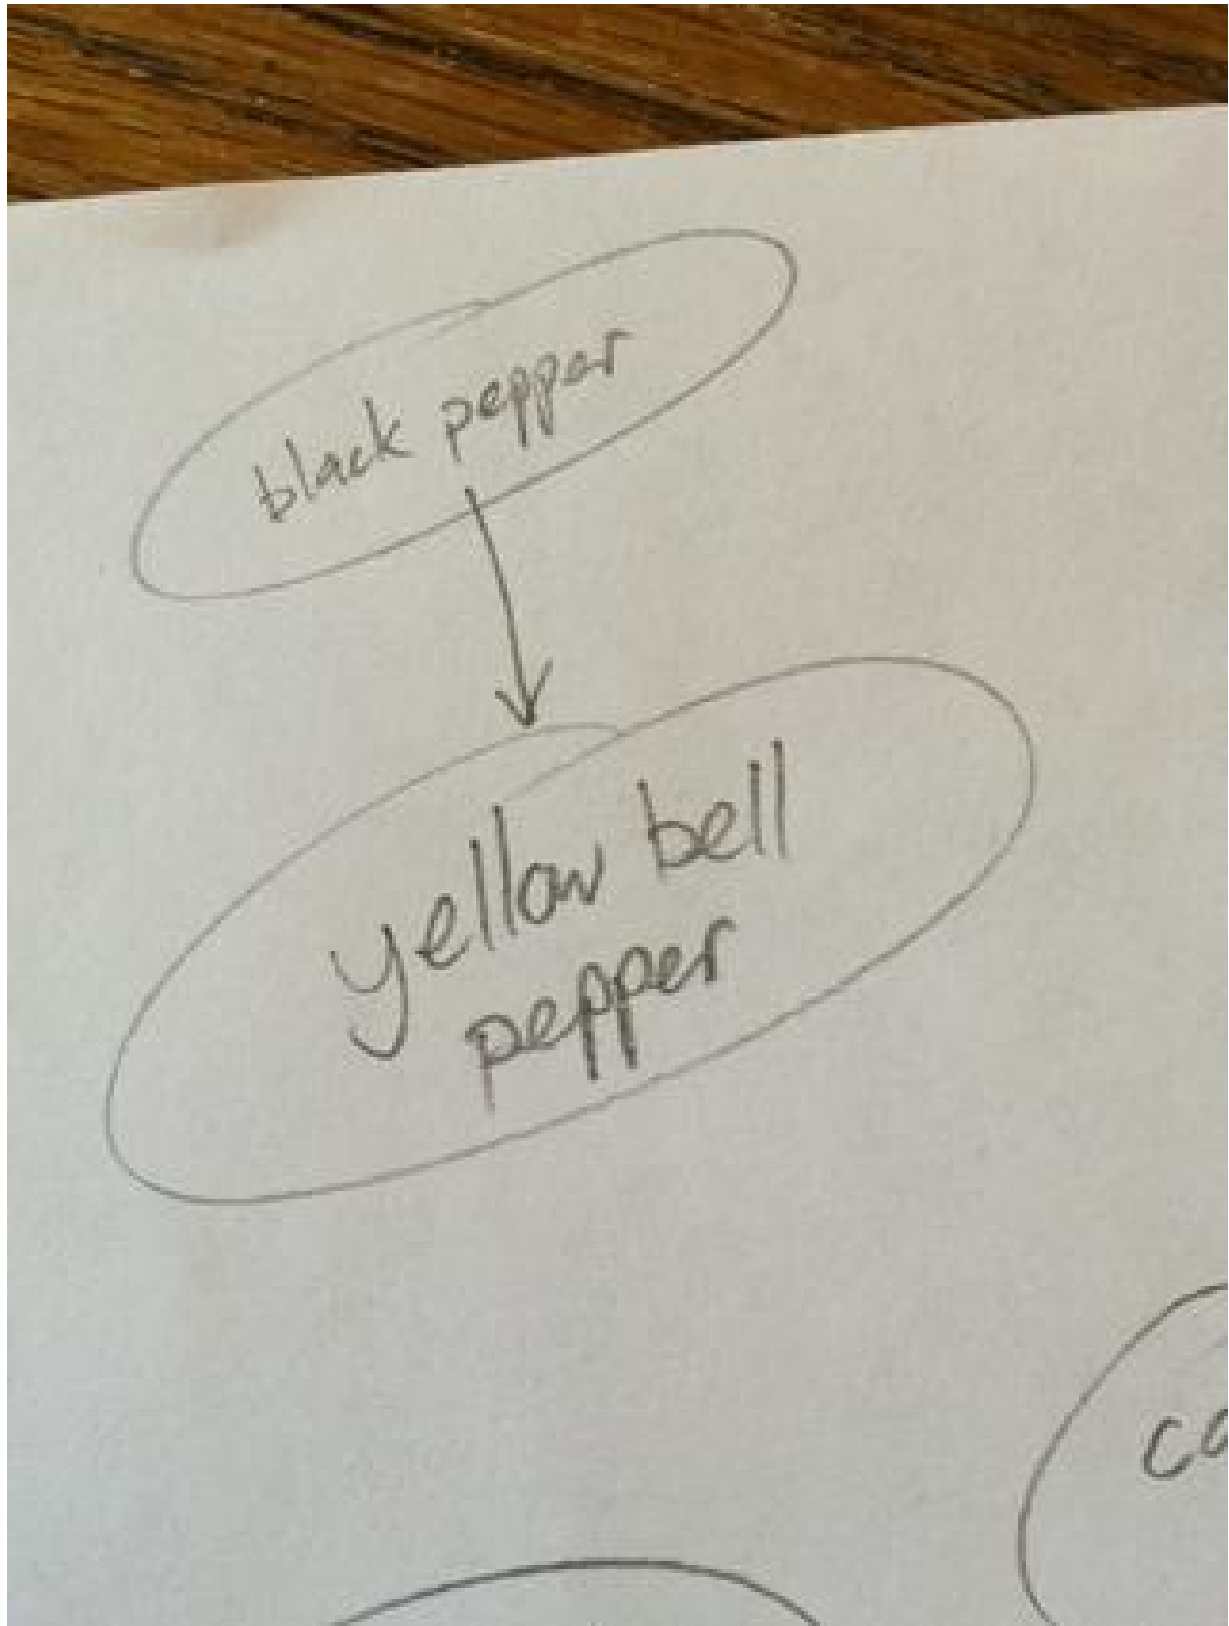 black pepper
yellow bell
pepper